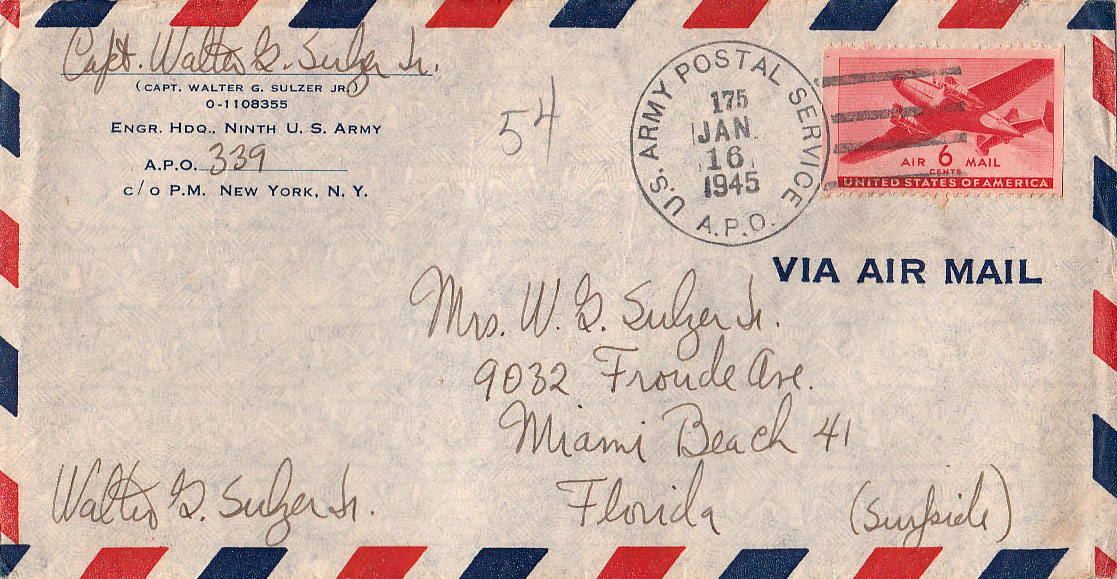 Capt. Walter G. Sulzer Jr.
(CAPT. WALTER G. SULZER JR.)
O-1108355
ENGR. HDQ., NINTH U. S. ARMY
A.P.O. 339
c/o P.M. NEW YORK, N. Y.
54
U.S. ARMY POSTAL SERVICE
175
JAN
16
1945
A.P.O.
AIR 6 MAIL
CENTS
UNITED STATES OF AMERICA
VIA AIR MAIL
Mrs. W. G. Sulzer Jr.
9032 Froude Ave.
Miami Beach 41
Florida (Surfside)
Walter G. Sulzer Jr.